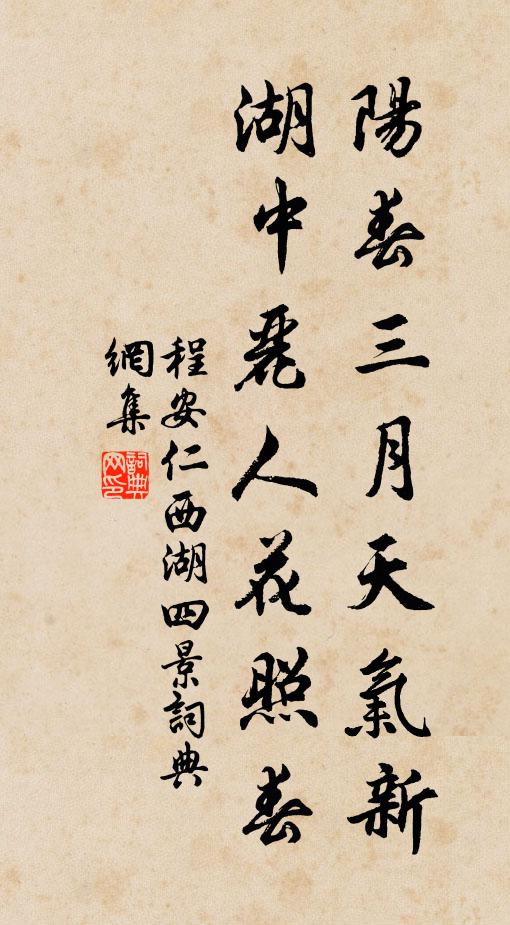 陽春三月天氣新
湖中麗人花照春
程安仁西湖四景詞典
網集
詞典網印